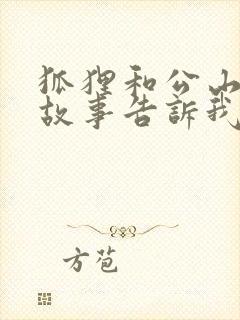 狐狸和公山
故事告訴我
方苞